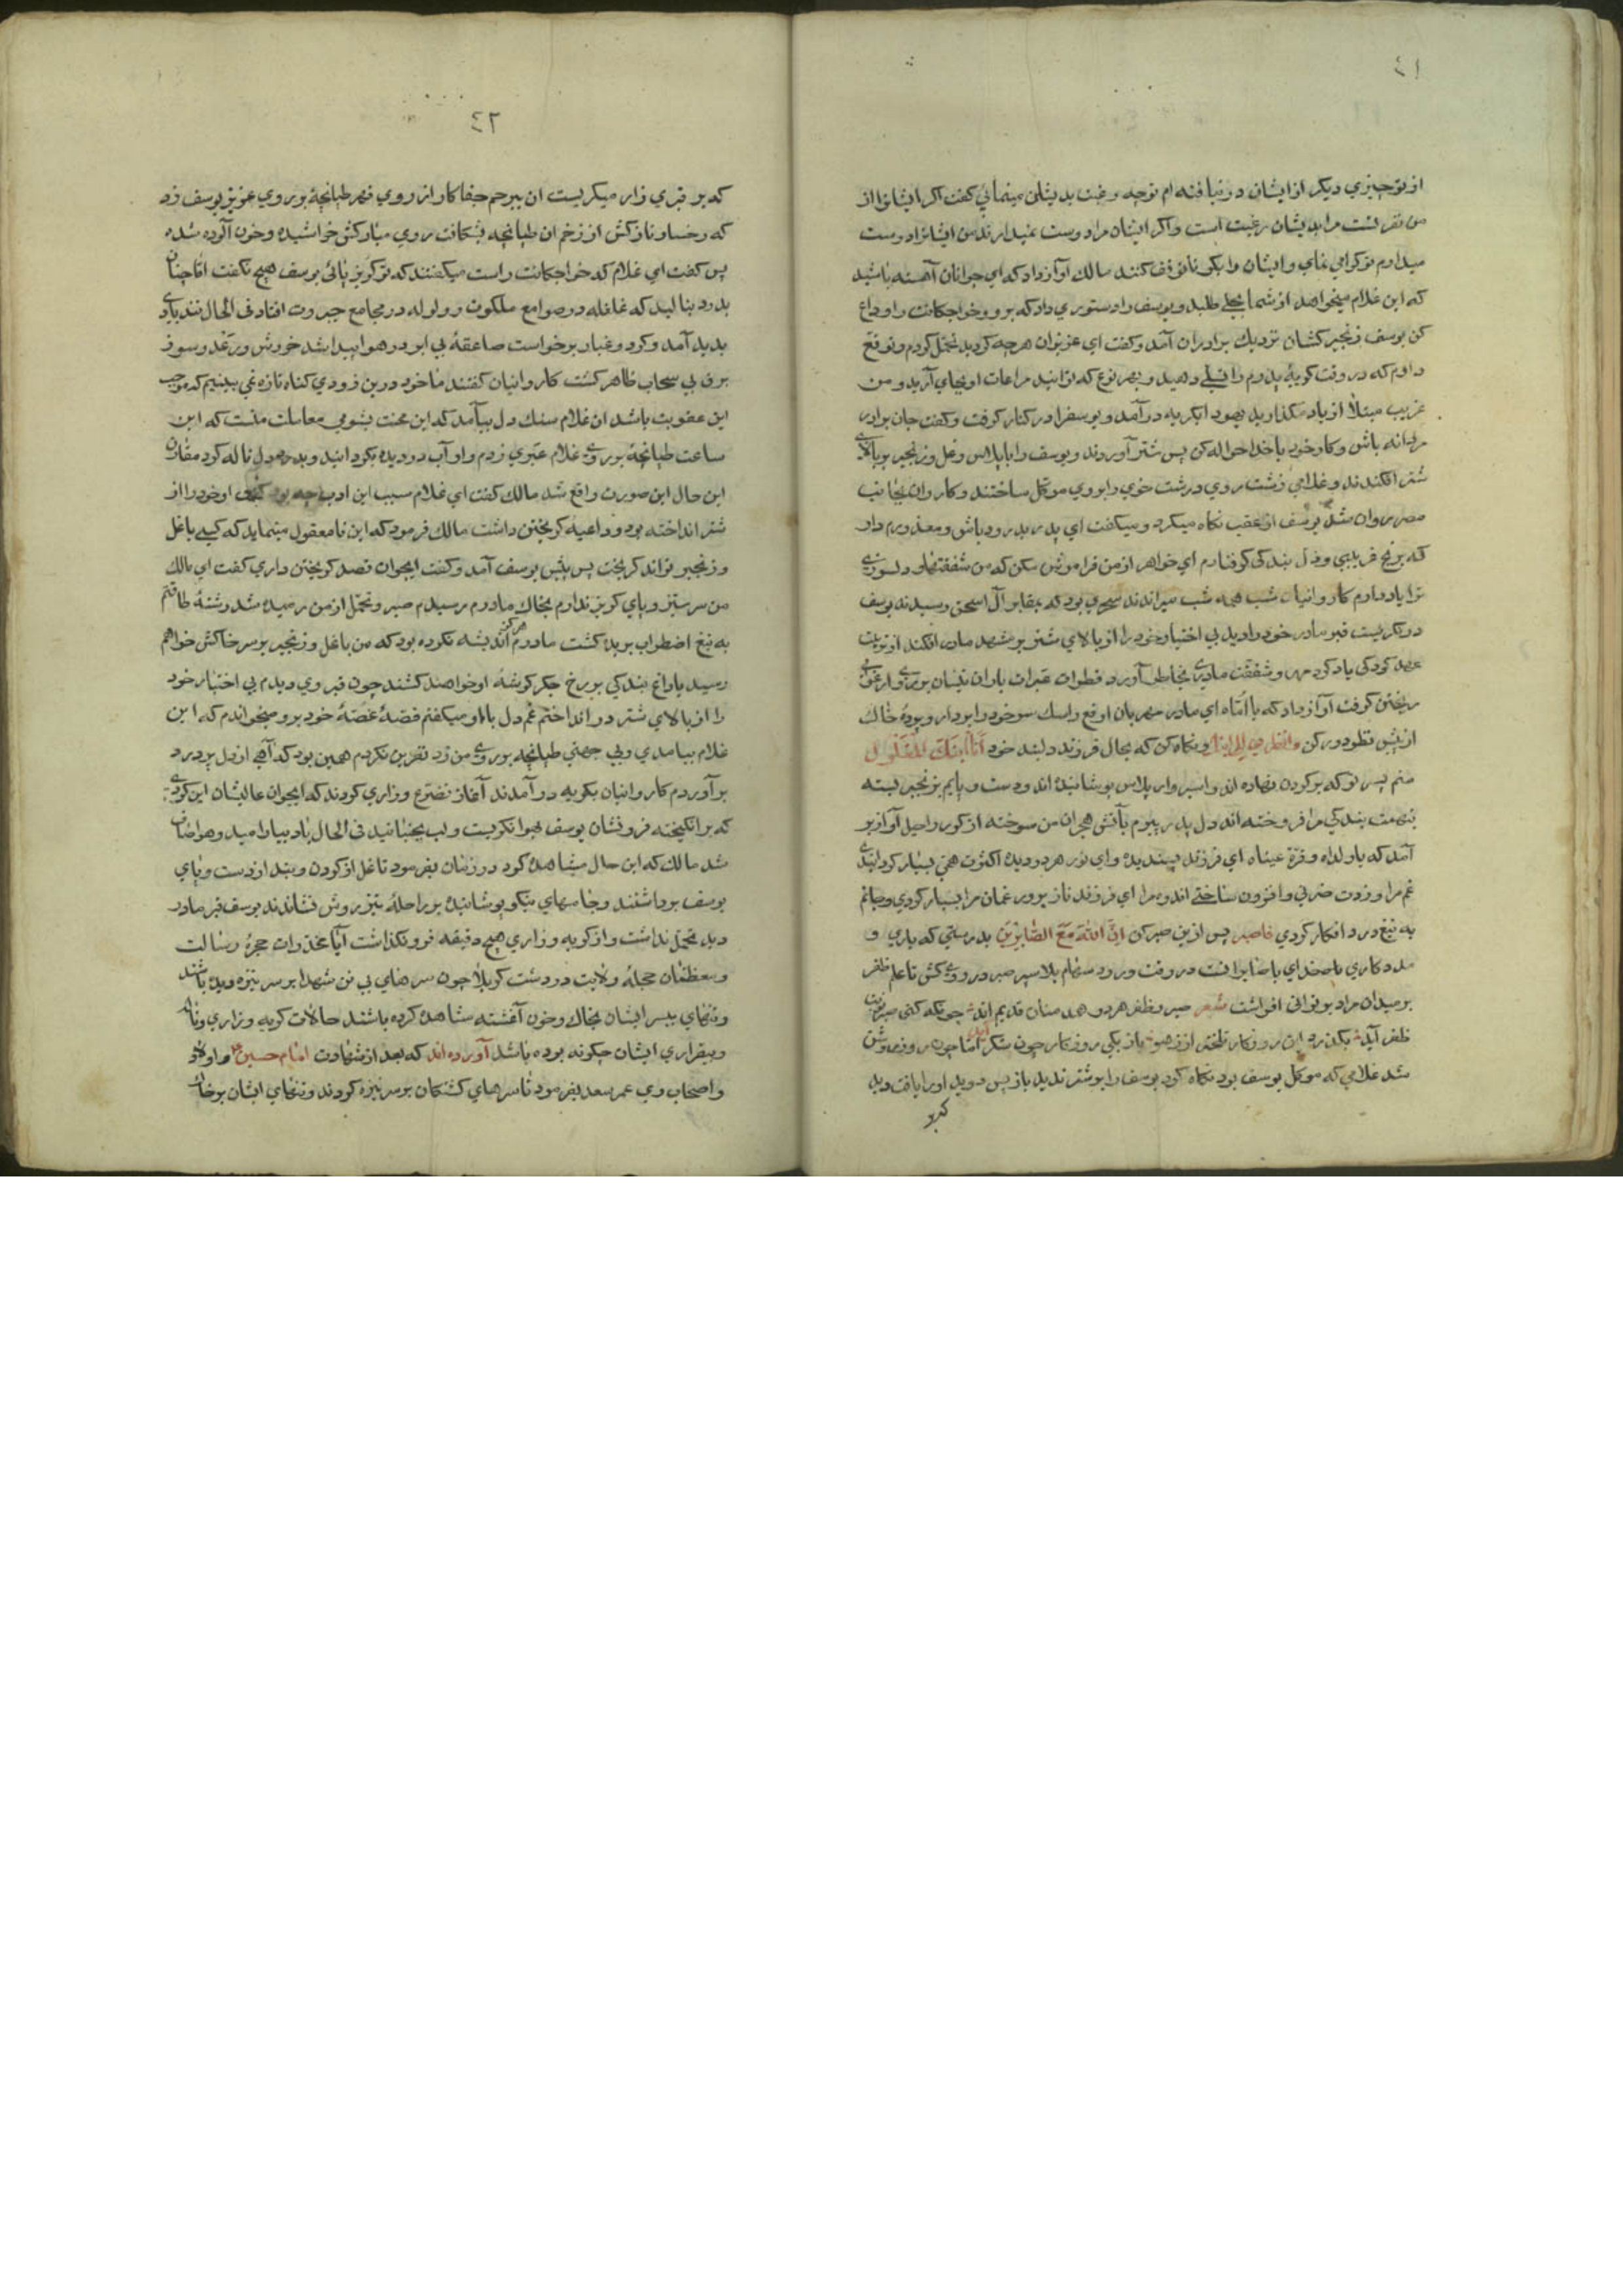 ٤١
از تو چیزي دیکر از ایشان در نیافته ام توجه و رغبت بدیشان مینمائي کفت اکر ایشانرا از
من نفرتست مرا بدیشان رغبت است و اکر ایشان مرا دوست نمیدارند من ایشانرا دوست
میدارم تو کرامي نماي و ایشان را بکو تا توقف کنند مالك آواز داد که اي جوانان آهسته باشید
که این غلام میخواهد از شما بحلی طلبد و یوسف را دستوري داد که برو و خواجکانت را وداع
کن یوسف زنجیر کشان نزدیك برادران آمد و کفت اي عزیزان هر چه کردید تحمل کردم و توقع
دارم که در وقت کریهٔ پدرم را تسلي دهید و بهر نوع که توانید مراعات او بجاي آرید و من
غریب مبتلا از یاد مکذارید یهودا بکریه در آمد و یوسفرا در کنار کرفت و کفت جان برادر
مردانه باش و کار خود با خدا حواله کن پس شتر آوردند و یوسف را با پلاس و غل و زنجیر بر بالاي
شتر افکندند و غلامي زشت روي درشت خوي را بر وي موکل ساختند و کاروان بجانب
مصر روان شد یوسف از عقب نکاه میکرد و میکفت اي پدر بدرود باش و معذورم دار
که برنج غریبي و ذل بندکي کرفتارم اي خواهر از من فراموش مکن که من شفقتها و دلسوزي
ترا یاد دارم کاروانیان شب همه شب میراندند سحري بود که بمقابر آل اسحق رسیدند یوسف
در نکریست قبر مادر خود را دید بي اختیار خود را از بالاي شتر بر مشهد مادر افکند از تربیت
عهد کودکي یاد کرد مهر و شفقت مادري بخاطر آورد قطرات عبرات باران نیسان بر روي ارغواني
ریختن کرفت آواز داد که یا اماه اي مادر مهربان ارفع راسك سر خود را بردار و پردهٔ خاك
از پیش نظر دور کن و انظري الی ابنك و نکاه کن که بحال فرزند دلبند خود أنا ابنك المغلول
منم پسر تو که بر کردن نهاده اند و اسیر وار پلاس پوشانیده اند و دست و پایم بزنجیر بسته
بتهمت بندکي مرا فروخته اند دل پدر پیرم بآتش هجران من سوخته از کور راحیل آواز بر
آمد که یا ولداه و قرة عیناه اي فرزند پسندیده و اي نور هر دو دیده اکثرت همي بسیار کردانیدي
غم مرا و زدت حزني و افزون ساختي اندوه مرا اي فرزند ناز پرور غمان مرا بسیار کردي و جانم
به تیغ درد افکار کردي فاصبر پس ازین صبر کن ان الله مع الصابرین بدرستي که یاري و
مددکاري با خداي با صابرانست در وقت ورود سهام بلا سپر صبر در روي کش تا علم ظفر
بر میدان مراد بر تواني افراشت شعر صبر و ظفر هر دو همه منان قدیم اند چونکه کنی صبر نوبت
ظفر آید بکذرد این روزکار تلختر از زهر باز یکي روزکار چون شکر آید اما چون روز روشن
شد غلامي که موکل یوسف بود نکاه کرد یوسف را بر شتر ندید باز پس دوید او را یافت دید
که بر
٤٢
که بر قبري زار میکریست ان بیرحم جفا کار از روي قهر طپانچهٔ بر روي عزیز یوسف زد
که رخسار نازکش از زخم ان طپانچه بشکافت روي مبارکش خراشیده و خون آلوده شده
پس کفت اي غلام که خواجکانت راست میکفتند که تو کریز پائي یوسف هیچ نکفت اما چنان
بدرد بنالید که غلغله در صوامع ملکوت و ولوله در مجامع جبروت افتاد في الحال تندبادي
بدید آمد و کرد و غبار برخواست صاعقهٔ بي ابر در هوا پیدا شد خروش و رعد و سوز
برق بي سحاب ظاهر کشت کاروانیان کفتند ما خود درین زودي کناه تازه نمي بینیم که موجب
این عقوبت باشد ان غلام سنك دل بیامد که این محنت بشومي معاملت منست که این
ساعت طپانچهٔ بر روي غلام عبري زدم و او آب در دیده بکردانید و بدرد دل ناله کرد مقارن
این حال این صورت واقع شد مالك کفت اي غلام سبب این ادب چه بود کفت او خود را از
شتر انداخته بود و داعیه کریختن داشت مالك فرمود که این نامعقول مینماید که کسی با غل
و زنجیر تواند کریخت پس پیش یوسف آمد و کفت ایجوان قصد کریختن داري کفت اي مالك
من سر ستیز و پاي کریز ندارم بخاك مادرم رسیدم صبر و تحمل از من رمیده شد رشتهٔ طاقتم
به تیغ اضطراب بریده کشت مادرم هرکز اندیشه نکرده بود که من با غل و زنجیر بر سر خاکش خواهم
رسید یا داغ بندکي بر رخ جکر کوشهٔ او خواهند کشند چون قبر وي دیدم بي اختیار خود
را از بالاي شتر در انداختم غم دل با او میکفتم قصهٔ غصهٔ خود برو میخواندم که این
غلام بیامدي و بي جهتي طپانچه بر روي من زد نفرین نکردم همین بود که آهي از دل پر درد
بر آوردم کاروانیان بکریه در آمدند آغاز تضرع و زاري کردند که ایجوان عالیشان این کردي
که بر انکیخته فرو نشان یوسف بهوا نکریست و لب بجنبانید في الحال باد بیارامید و هوا صاف
شد مالك که این حال مشاهده کرد در زمان بفرمود تا غل از کردن و بند از دست و پاي
یوسف برداشتند و جامهاي نیکو پوشانیده بر راحلهٔ تیز روش نشاندند یوسف قبر مادر
دید تحمل نداشت و از کریه و زاري هیچ دقیقه فرو نکذاشت آیا مخدرات حجرهٔ رسالت
و معظمان حجلهٔ ولایت در دشت کربلا چون سرهاي بي تن شهدا بر سر نیزه دیده باشند
و تنهاي بیسر ایشان بخاك و خون آغشته مشاهده کرده باشند حالات کریه و زاري و ناله
و بیقراري ایشان چکونه بوده باشد آورده اند که بعد از شهادت امام حسین و اولاد
و اصحاب وي عمر سعد بفرمود تا سرهاي کشتکان بر سر نیزه کردند و تنهاي ایشان بر خاك